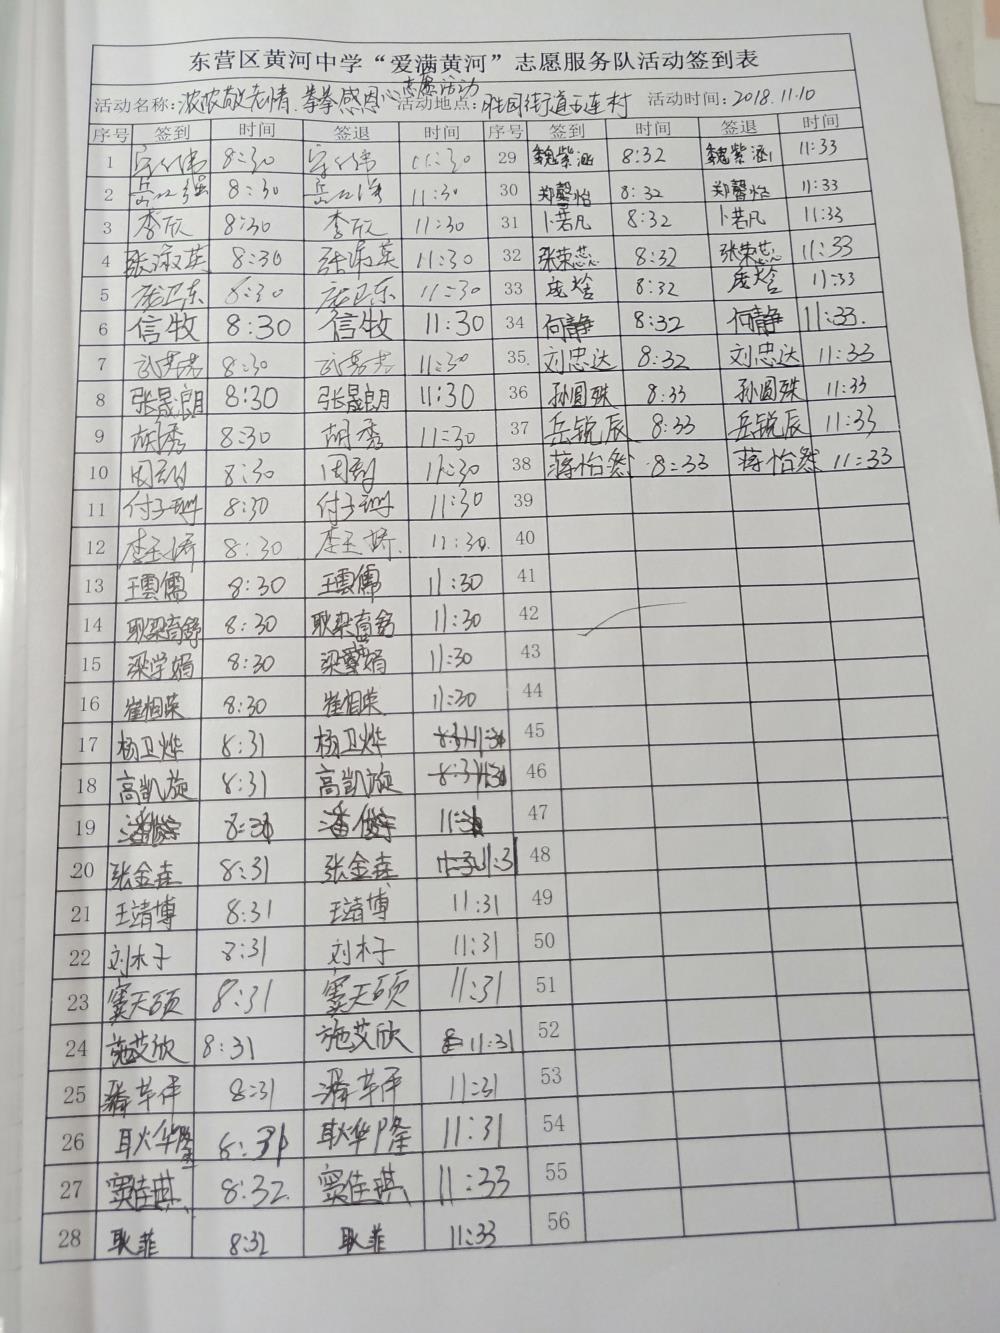 东营区黄河中学“爱满黄河”志愿服务队活动签到表
活动名称：浓浓敬老情 拳拳感恩心志愿活动 活动地点：胜园街道五连村 活动时间：2018.11.10
序号 签到 时间 签退 时间 序号 签到 时间 签退 时间
1 8:30 11:30 29 魏紫涵 8:32 魏紫涵 11:33
2 8:30 11:30 30 郑馨怡 8:32 郑馨怡 11:33
3 李欣 8:30 李欣 11:30 31 卜若凡 8:32 卜若凡 11:33
4 张淑英 8:30 张淑英 11:30 32 张荣蕊 8:32 张荣蕊 11:33
5 庞卫东 8:30 庞卫东 11:30 33 8:32 11:33
6 信牧 8:30 信牧 11:30 34 何静 8:32 何静 11:33.
7 8:30 11:30 35 刘忠达 8:32 刘忠达 11:33
8 张晟朗 8:30 张晟朗 11:30 36 孙圆殊 8:33 孙圆殊 11:33
9 胡秀 8:30 胡秀 11:30 37 岳锐辰 8:33 岳锐辰 11:33
10 8:30 11:30 38 蒋怡然 8:33 蒋怡然 11:33
11 付子珊 8:30 付子珊 11:30 39
12 李玉娇 8:30 李玉娇 11:30 40
13 王雲儒 8:30 王雲儒 11:30 41
14 耿梁育舒 8:30 耿梁育舒 11:30 42
15 梁学娟 8:30 梁学娟 11:30 43
16 崔相荣 8:30 崔相荣 11:30 44
17 杨卫烨 8:31 杨卫烨 11:31 45
18 高凯旋 8:31 高凯旋 11:31 46
19 潘俊宇 8:31 潘俊宇 11:31 47
20 张金垚 8:31 张金垚 11:31 48
21 王靖博 8:31 王靖博 11:31 49
22 刘木子 8:31 刘木子 11:31 50
23 窦天硕 8:31 窦天硕 11:31 51
24 施艾欣 8:31 施艾欣 11:31 52
25 8:31 11:31 53
26 耿华隆 8:31 耿华隆 11:31 54
27 窦佳琪 8:32 窦佳琪 11:33 55
28 耿菲 8:32 耿菲 11:33 56